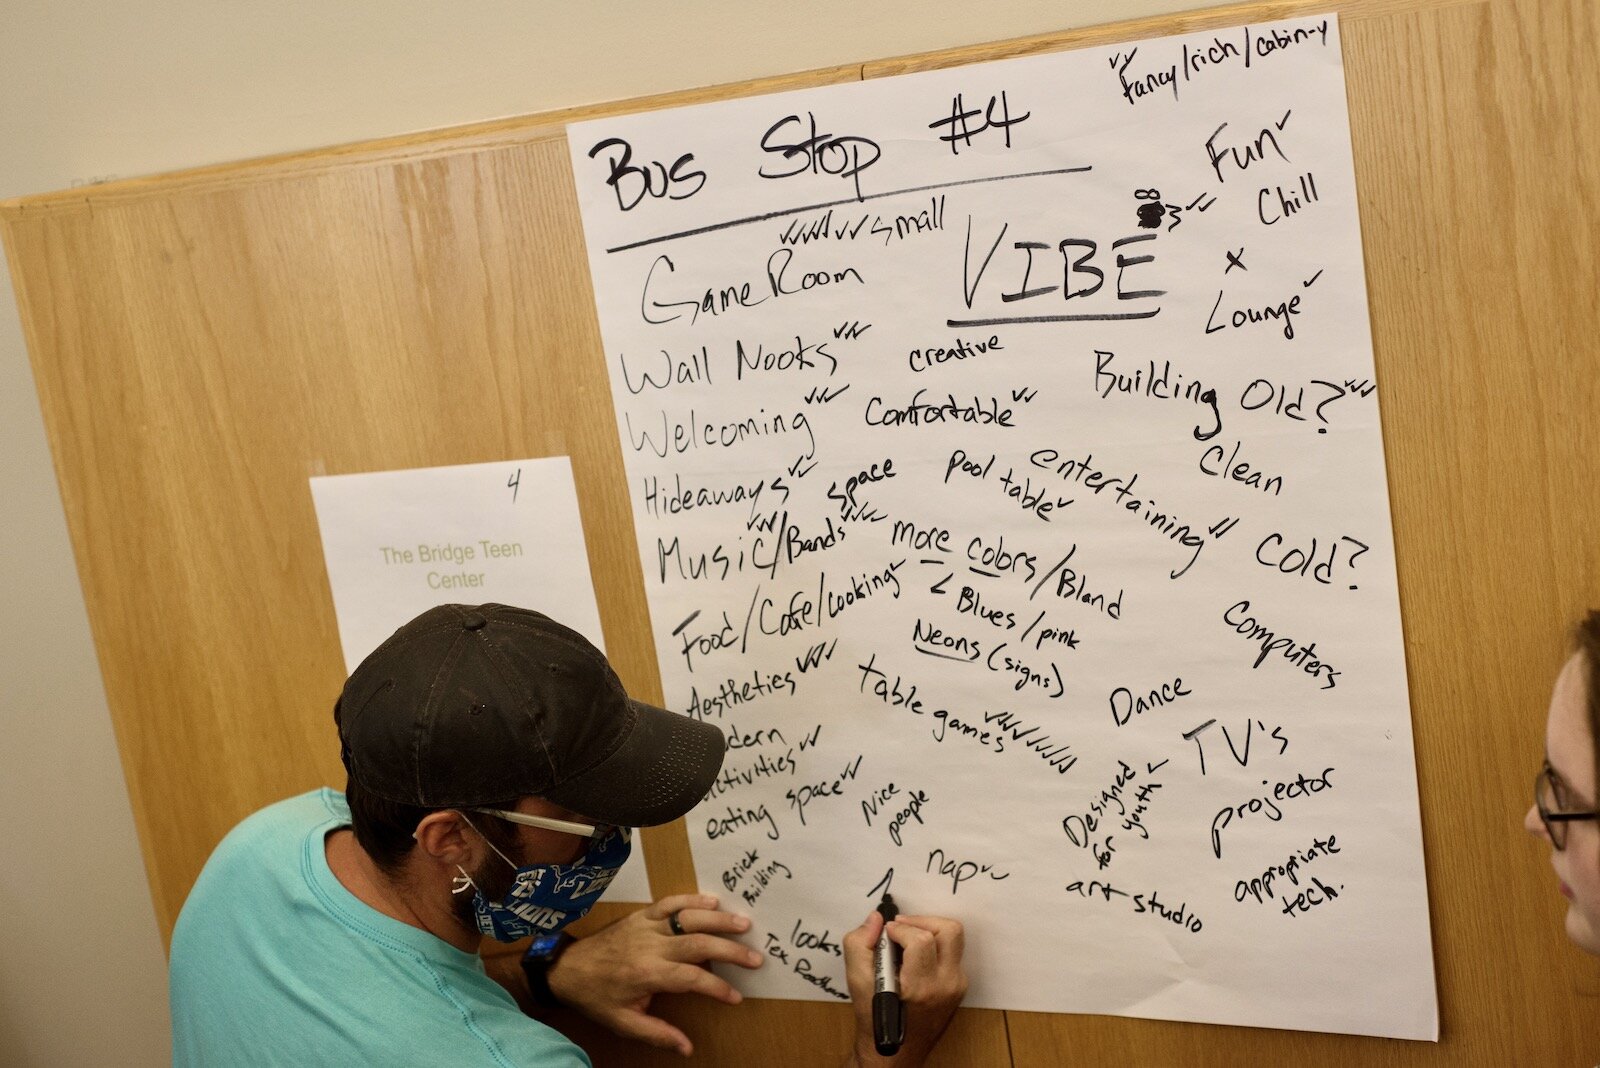 Fancy/rich/cabin-y
Bus Stop #4
Fun
Chill
x
Lounge
small
Game Room
VIBE
Wall Nooks
creative
Building Old?
Welcoming
Comfortable
Clean
Hideaways
space
pool table
entertaining
Music/Bands
more colors/Bland
Cold?
Food/Cafe/Cooking
< Blues/pink
Neons (signs)
Computers
Aesthetics
table games
Dance
dern
activities
TV's
eating space
Nice
people
Designed
for youth
projector
Brick
Building
nap
art studio
appropriate
tech.
looks
Tex Roadhouse
4
The Bridge Teen
Center
LIONS